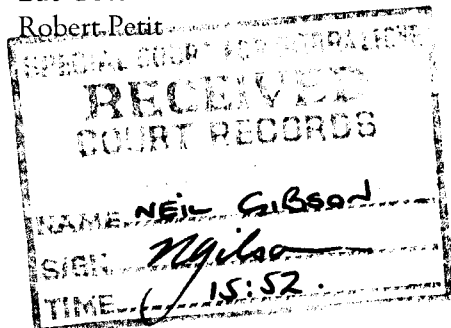 Robert Petit
SPECIAL COURT FOR SIERRA LEONE
RECEIVED
COURT RECORDS
NAME NEIL GIBSON
SIGN NGibson
TIME 15:52.